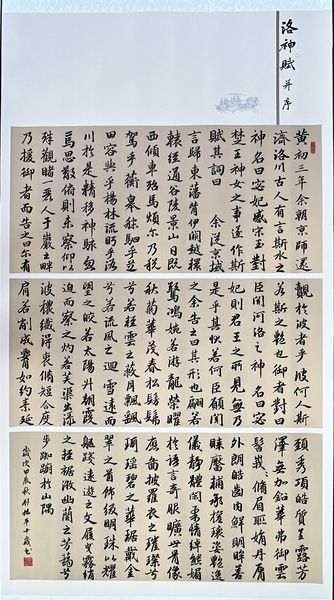 洛神賦 并序
黃初三年余朝京師還
濟洛川古人有言斯水之
神名曰宓妃感宋玉對
楚王神女之事遂作斯
賦其詞曰 余從京域
言歸東藩背伊闕越轘
轅經通谷陵景山日既
西傾車殆馬煩爾乃稅
駕乎蘅皋秣駟乎芝
田容與乎楊林流眄乎洛
川於是精移神駭忽
焉思散俯則未察仰以
殊觀睹一麗人于巖之畔
乃援御者而告之曰爾有
覿於彼者乎彼何人斯
若斯之豔也御者對曰
臣聞河洛之神名曰宓
妃則君王之所見無乃
是乎其狀若何臣願聞
之余告之曰其形也翩若
驚鴻婉若游龍榮曜
秋菊華茂春松髣髴
兮若輕雲之蔽月飄颻
兮若流風之迴雪遠而
望之皎若太陽升朝霞
迫而察之灼若芙蕖出淥
波穠纖得衷脩短合度
肩若削成腰如約素延
頸秀項皓質呈露芳
澤無加鉛華弗御雲
髻峩峩脩眉聯娟丹脣
外朗皓齒內鮮明眸善
睞靨輔承權瓌姿豔逸
儀靜體閑柔情綽態媚
於語言奇服曠世骨像
應圖披羅衣之璀璨兮
珥瑤碧之華琚戴金
翠之首飾綴明珠以耀
軀踐遠遊之文履曳霧綃
之輕裾微幽蘭之芳藹兮
步踟躕於山隅
歲次甲辰秋